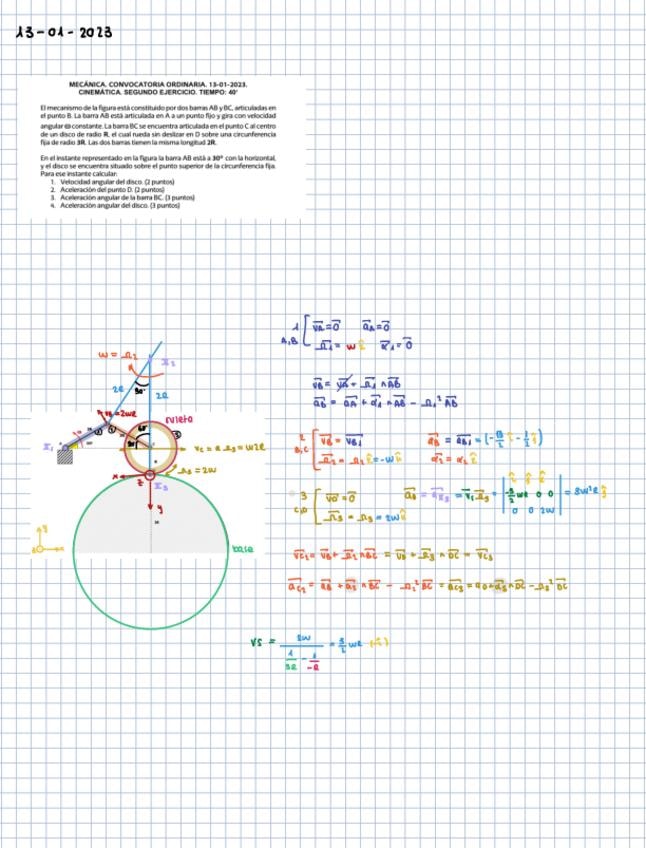 13-01-2023
MECÁNICA. CONVOCATORIA ORDINARIA. 13-01-2023.
CINEMÁTICA. SEGUNDO EJERCICIO. TIEMPO: 40'
El mecanismo de la figura está constituido por dos barras AB y BC, articuladas en
el punto B. La barra AB está articulada en A a un punto fijo y gira con velocidad
angular ω constante. La barra BC se encuentra articulada en el punto C al centro
de un disco de radio R, el cual rueda sin deslizar en D sobre una circunferencia
fija de radio 3R. Las dos barras tienen la misma longitud 2R.
En el instante representado en la figura la barra AB está a 30º con la horizontal,
y el disco se encuentra situado sobre el punto superior de la circunferencia fija.
Para ese instante calcular:
1. Velocidad angular del disco. (2 puntos)
2. Aceleración del punto D. (2 puntos)
3. Aceleración angular de la barra BC. (3 puntos)
4. Aceleración angular del disco. (3 puntos)
1
A,B
VA=0 aA=0
Ω1= ω k α1=0
VB= VA+ Ω1 ∧ AB
aB= aA+ α1 ∧ AB - Ω1² AB
ω = Ω2
I2
2R
30º
2R
2
B,C
VB= VB1
Ω2= Ω2 k=-ω k
α2= α2 k
VB=2ωR
ruleta
I1
VC = R Ω3 = ω2R
Ω3 = 2ω
I3
x
y
base
3
C,D
VD=0
Ω3= Ω3=2ωk
= 8ω²R j
VC2= VB+ Ω2 ∧ BC = VD+ Ω3 ∧ DC = VC3
aC2= aB + α2 ∧ BC - Ω2² BC = aC3= aD+α3∧DC-Ω3² DC
VS =
2ω
1
3R
-
1
-R
= 3/2 ωR